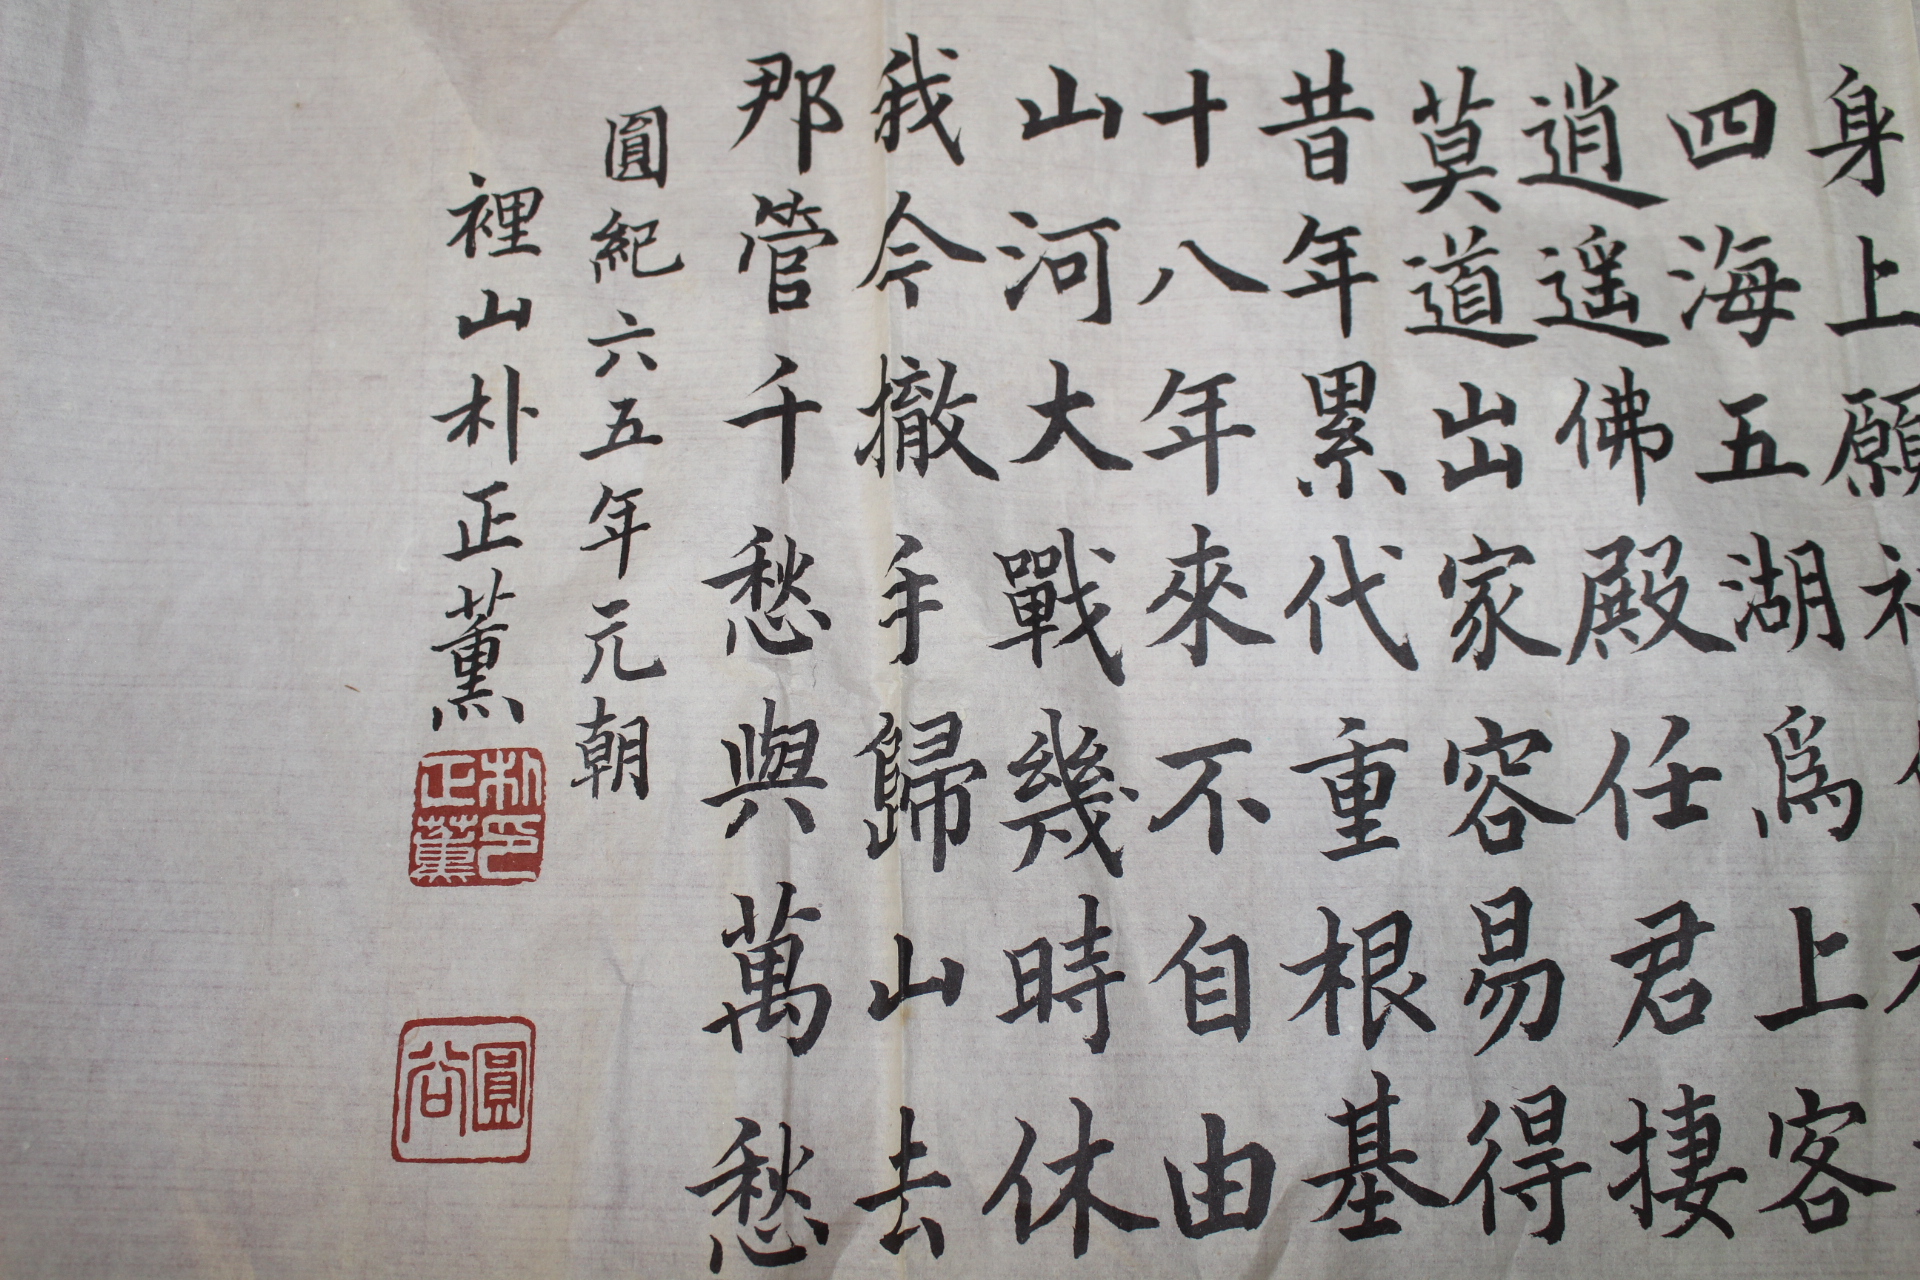 身上願
四海五湖爲上客
逍遙佛殿任君捿
莫道出家容易得
昔年累代重根基
十八年來不自由
山河大戰幾時休
我今撤手歸山去
那管千愁與萬愁
圓紀六五年元朝
裡山朴正薰
朴正薰印
圓谷